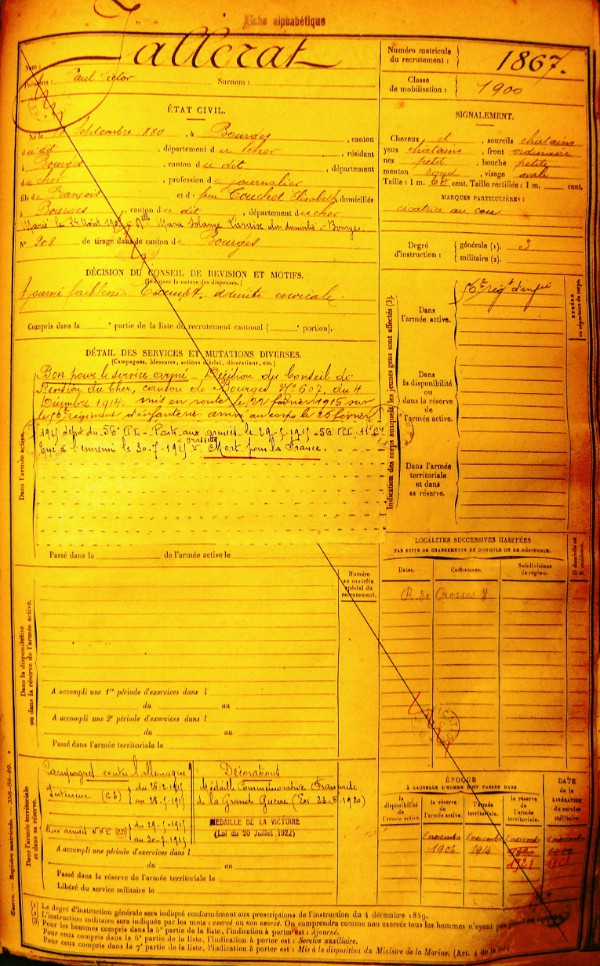 Fiche alphabétique
Nom :
Tallerat
Prénoms : Paul Victor Surnom :
Numéro matricule du recrutement : 1867.
Classe de mobilisation : 1900
ÉTAT CIVIL.
Né le Septembre 1880, à Bourges, canton
du dit, département du Cher, résidant
à Bourges, canton du dit, département
du Cher, profession de journalier
fils de François et de feu Elisabeth, domiciliés
à Bourges, canton du dit, département du Cher
Marié le 24 Août Marie Solange Bourges.
N° 208 de tirage dans le canton de Bourges
SIGNALEMENT.
Cheveux et sourcils chatains
yeux chatains, front ordinaire
nez petit, bouche petite
menton rond, visage ovale
Taille : 1 m. cent. Taille rectifiée : 1 m. cent.
MARQUES PARTICULIÈRES :
cicatrice au cou
Degré d'instruction :
générale (1). 3
militaire (2).
DÉCISION DU CONSEIL DE REVISION ET MOTIFS.
Ajourné faiblesse. Exempt, adénite cervicale.
Compris dans la partie de la liste de recrutement cantonal ( portion).
DÉTAIL DES SERVICES ET MUTATIONS DIVERSES.
(Campagnes, blessures, actions d'éclat, décorations, etc.)
Bon pour le service armé. Décision du Conseil de
Révision du Cher, canton de Bourges N° 607 du 4
Décembre 1914, mis en route le 22 février 1915 sur
le 56e régiment d'infanterie arrivé au corps le 26 février
1915 dépôt du 56e R.I. Parti aux armées le 29-5-1915
Tué à l'ennemi le 30-7-1915 Mort pour la France.
Dans l'armée active.
Passé dans la de l'armée active le
Indication des corps auxquels les jeunes gens sont affectés (3).
Dans l'armée active.
56e régt d'infie
Dans la disponibilité ou dans la réserve de l'armée active.
Dans l'armée territoriale et dans sa réserve.
LOCALITÉS SUCCESSIVES HABITÉES
PAR SUITE DE CHANGEMENTS DE DOMICILE OU DE RÉSIDENCE.
Dates. Communes. Subdivisions de région.
R. de Crosses 8
Dans la disponibilité ou dans la réserve de l'armée active.
A accompli une 1re période d'exercices dans l
du au
A accompli une 2e période d'exercices dans l
du au
Passé dans l'armée territoriale le
Dans l'armée territoriale et dans sa réserve.
Campagnes contre l'Allemagne
Intérieur (CS) du 26-2-1915
au 28-5-1915
Aux armées du 29-5-1915
au 30-7-1915
Décorations
Médaille Commémorative Française
de la Grande Guerre (Loi 23-6-1920)
MÉDAILLE DE LA VICTOIRE
(Loi du 20 Juillet 1922)
A accompli une période d'exercices dans l
du au
Passé dans la réserve de l'armée territoriale le
Libéré du service militaire le
ÉPOQUE
À LAQUELLE L'HOMME DOIT PASSER DANS
la disponibilité de l'armée active.
la réserve de l'armée active.
l'armée territoriale.
la réserve de l'armée territoriale.
DATE de la LIBÉRATION du service militaire.
1 novembre 1904
(1) Le degré d'instruction générale sera indiqué conformément aux prescriptions de l'instruction du 4 décembre 1889.
(2) L'instruction militaire sera indiquée par les mots : exercé ou non exercé. On comprendra comme non exercés tous les hommes n'ayant pas
(3) Pour les hommes compris dans la 5e partie de la liste, l'indication à porter est : Ajourné.
Pour ceux compris dans la 6e partie de la liste, l'indication à porter est : Service auxiliaire.
Pour ceux compris dans la 7e partie de la liste, l'indication à porter est : Mis à la disposition du Ministre de la Marine.